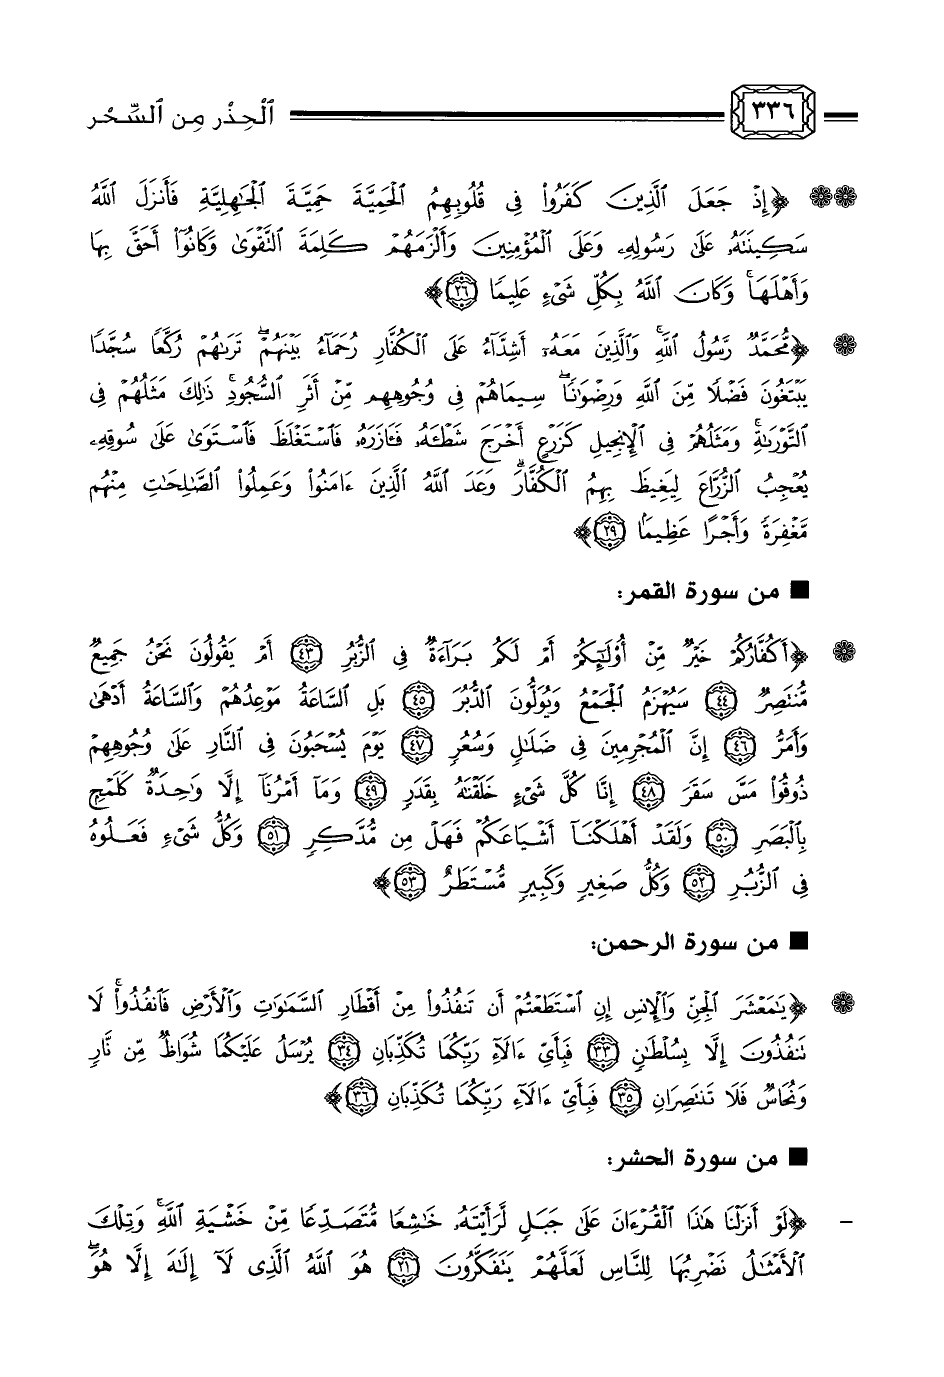 ٣٣٦ ٱلْحِذْر مِن ٱلسِّحْر
﴿إِذْ جَعَلَ ٱلَّذِينَ كَفَرُوا۟ فِى قُلُوبِهِمُ ٱلْحَمِيَّةَ حَمِيَّةَ ٱلْجَٰهِلِيَّةِ فَأَنزَلَ ٱللَّهُ
سَكِينَتَهُۥ عَلَىٰ رَسُولِهِۦ وَعَلَى ٱلْمُؤْمِنِينَ وَأَلْزَمَهُمْ كَلِمَةَ ٱلتَّقْوَىٰ وَكَانُوٓا۟ أَحَقَّ بِهَا
وَأَهْلَهَا ۚ وَكَانَ ٱللَّهُ بِكُلِّ شَىْءٍ عَلِيمًا ٢٦﴾
﴿مُّحَمَّدٌ رَّسُولُ ٱللَّهِ ۚ وَٱلَّذِينَ مَعَهُۥٓ أَشِدَّآءُ عَلَى ٱلْكُفَّارِ رُحَمَآءُ بَيْنَهُمْ ۖ تَرَىٰهُمْ رُكَّعًا سُجَّدًا
يَبْتَغُونَ فَضْلًا مِّنَ ٱللَّهِ وَرِضْوَٰنًا ۖ سِيمَاهُمْ فِى وُجُوهِهِم مِّنْ أَثَرِ ٱلسُّجُودِ ۚ ذَٰلِكَ مَثَلُهُمْ فِى
ٱلتَّوْرَىٰةِ ۚ وَمَثَلُهُمْ فِى ٱلْإِنجِيلِ كَزَرْعٍ أَخْرَجَ شَطْـَٔهُۥ فَـَٔازَرَهُۥ فَٱسْتَغْلَظَ فَٱسْتَوَىٰ عَلَىٰ سُوقِهِۦ
يُعْجِبُ ٱلزُّرَّاعَ لِيَغِيظَ بِهِمُ ٱلْكُفَّارَ ۗ وَعَدَ ٱللَّهُ ٱلَّذِينَ ءَامَنُوا۟ وَعَمِلُوا۟ ٱلصَّٰلِحَٰتِ مِنْهُم
مَّغْفِرَةً وَأَجْرًا عَظِيمًۢا ٢٩﴾
■ من سورة القمر:
﴿أَكُفَّارُكُمْ خَيْرٌ مِّنْ أُو۟لَٰٓئِكُمْ أَمْ لَكُم بَرَآءَةٌ فِى ٱلزُّبُرِ ٤٣ أَمْ يَقُولُونَ نَحْنُ جَمِيعٌ
مُّنتَصِرٌ ٤٤ سَيُهْزَمُ ٱلْجَمْعُ وَيُوَلُّونَ ٱلدُّبُرَ ٤٥ بَلِ ٱلسَّاعَةُ مَوْعِدُهُمْ وَٱلسَّاعَةُ أَدْهَىٰ
وَأَمَرُّ ٤٦ إِنَّ ٱلْمُجْرِمِينَ فِى ضَلَٰلٍ وَسُعُرٍ ٤٧ يَوْمَ يُسْحَبُونَ فِى ٱلنَّارِ عَلَىٰ وُجُوهِهِمْ
ذُوقُوا۟ مَسَّ سَقَرَ ٤٨ إِنَّا كُلَّ شَىْءٍ خَلَقْنَٰهُ بِقَدَرٍ ٤٩ وَمَآ أَمْرُنَآ إِلَّا وَٰحِدَةٌ كَلَمْحٍۭ
بِٱلْبَصَرِ ٥٠ وَلَقَدْ أَهْلَكْنَآ أَشْيَاعَكُمْ فَهَلْ مِن مُّدَّكِرٍ ٥١ وَكُلُّ شَىْءٍ فَعَلُوهُ
فِى ٱلزُّبُرِ ٥٢ وَكُلُّ صَغِيرٍ وَكَبِيرٍ مُّسْتَطَرٌ ٥٣﴾
■ من سورة الرحمن:
﴿يَٰمَعْشَرَ ٱلْجِنِّ وَٱلْإِنسِ إِنِ ٱسْتَطَعْتُمْ أَن تَنفُذُوا۟ مِنْ أَقْطَارِ ٱلسَّمَٰوَٰتِ وَٱلْأَرْضِ فَٱنفُذُوا۟ ۚ لَا
تَنفُذُونَ إِلَّا بِسُلْطَٰنٍ ٣٣ فَبِأَىِّ ءَالَآءِ رَبِّكُمَا تُكَذِّبَانِ ٣٤ يُرْسَلُ عَلَيْكُمَا شُوَاظٌ مِّن نَّارٍ
وَنُحَاسٌ فَلَا تَنتَصِرَانِ ٣٥ فَبِأَىِّ ءَالَآءِ رَبِّكُمَا تُكَذِّبَانِ ٣٦﴾
■ من سورة الحشر:
- ﴿لَوْ أَنزَلْنَا هَٰذَا ٱلْقُرْءَانَ عَلَىٰ جَبَلٍ لَّرَأَيْتَهُۥ خَٰشِعًا مُّتَصَدِّعًا مِّنْ خَشْيَةِ ٱللَّهِ ۚ وَتِلْكَ
ٱلْأَمْثَٰلُ نَضْرِبُهَا لِلنَّاسِ لَعَلَّهُمْ يَتَفَكَّرُونَ ٢١ هُوَ ٱللَّهُ ٱلَّذِى لَآ إِلَٰهَ إِلَّا هُوَ ۖ